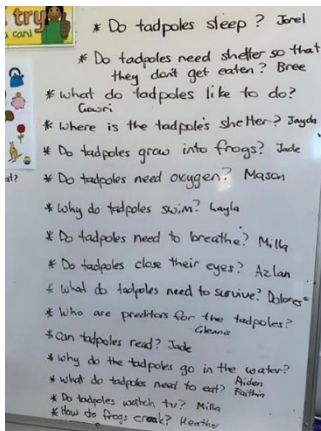 try
u can!
* Do tadpoles sleep? Jorel
* Do tadpoles need shelter so that
they don't get eaten? Bree
* what do tadpoles like to do?
Gowri
* where is the tadpole's shelter? Jayda
* Do tadpoles grow into frogs? Jade
at?
* Do tadpoles need oxygen? Mason
* why do tadpoles swim? Layla
* Do tadpoles need to breathe? Milla
* Do tadpoles close their eyes? Azlan
* what do tadpoles need to survive? Dolores
* Who are preditors for the tadpoles?
Glennis
* can tadpoles read? Jade
* why do the tadpoles go in the water?
Aiden
* what do tadpoles need to eat?
* Do tadpoles watch tv? Milla
* How do frogs croak? Heather